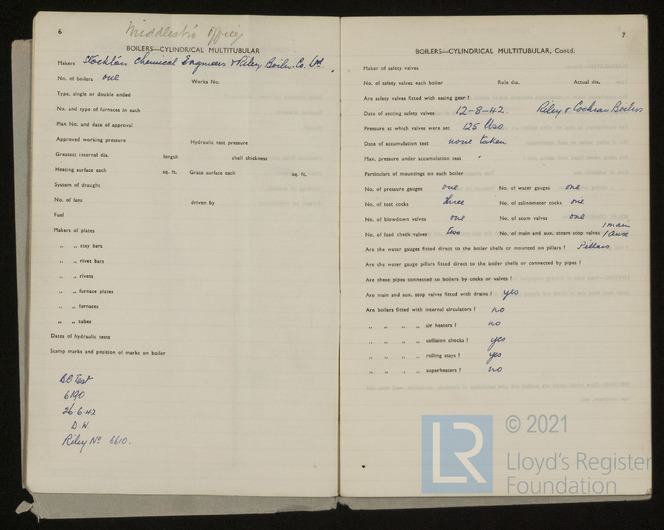 6
Middlesbro' office
BOILERS—CYLINDRICAL MULTITUBULAR
Makers Stockton Chemical Engineers & Riley Boiler Co. Ltd.
No. of boilers one Works No.
Type, single or double ended
No. and type of furnaces in each
Plan No. and date of approval
Approved working pressure Hydraulic test pressure
Greatest internal dia. length shell thickness
Heating surface each sq. ft. Grate surface each sq. ft.
System of draught
No. of fans driven by
Fuel
Makers of plates
„ „ stay bars
„ „ rivet bars
„ „ rivets
„ „ furnace plates
„ „ furnaces
„ „ tubes
Dates of hydraulic tests
Stamp marks and position of marks on boiler
Test
6190
26.6.42
D.H.
Riley No 6610.
7
BOILERS—CYLINDRICAL MULTITUBULAR, Contd.
Maker of safety valves
No. of safety valves each boiler Rule dia. Actual dia.
Are safety valves fitted with easing gear?
Date of setting safety valves 12-8-42. Riley & Cochran Boilers
Pressure at which valves were set 125 lbs.
Date of accumulation test none taken
Max. pressure under accumulation test "
Particulars of mountings on each boiler
No. of pressure gauges one No. of water gauges one
No. of test cocks three No. of salinometer cocks one
No. of blowdown valves one No. of scum valves one
No. of feed check valves two No. of main and aux. steam stop valves 1 main 1 aux
Are the water gauges fitted direct to the boiler shells or mounted on pillars? Pillars
Are the water gauge pillars fitted direct to the boiler shells or connected by pipes?
Are these pipes connected to boilers by cocks or valves?
Are main and aux. stop valves fitted with drains? yes
Are boilers fitted with internal circulators? no
„ „ „ „ air heaters? no
„ „ „ „ collision chocks? yes
„ „ „ „ rolling stays? yes
„ „ „ „ superheaters? no
LR
© 2021
Lloyd's Register
Foundation